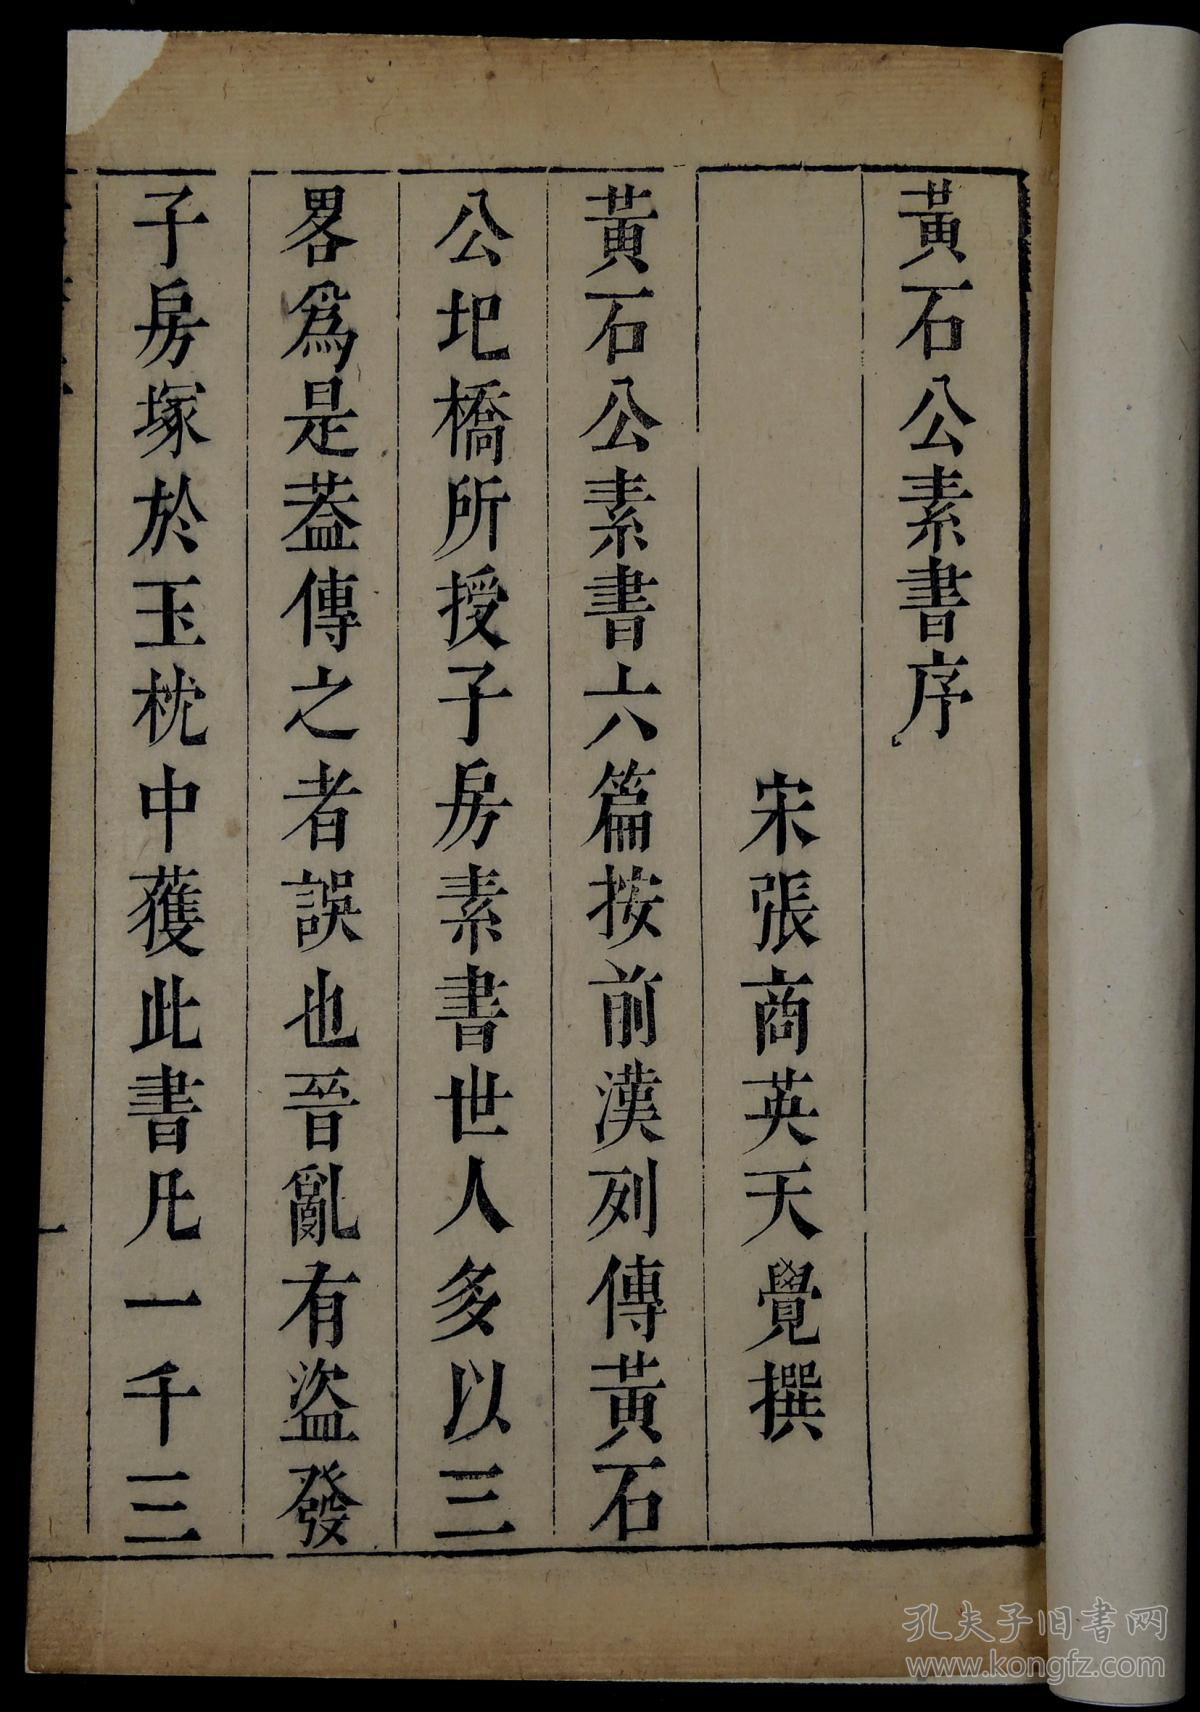 黃石公素書序
宋張商英天覺撰
黃石公素書六篇按前漢列傳黃石
公圯橋所授子房素書世人多以三
畧爲是葢傳之者誤也晉亂有盜發
子房塚於玉枕中獲此書凡一千三
一
孔夫子旧书网
www.kongfz.com